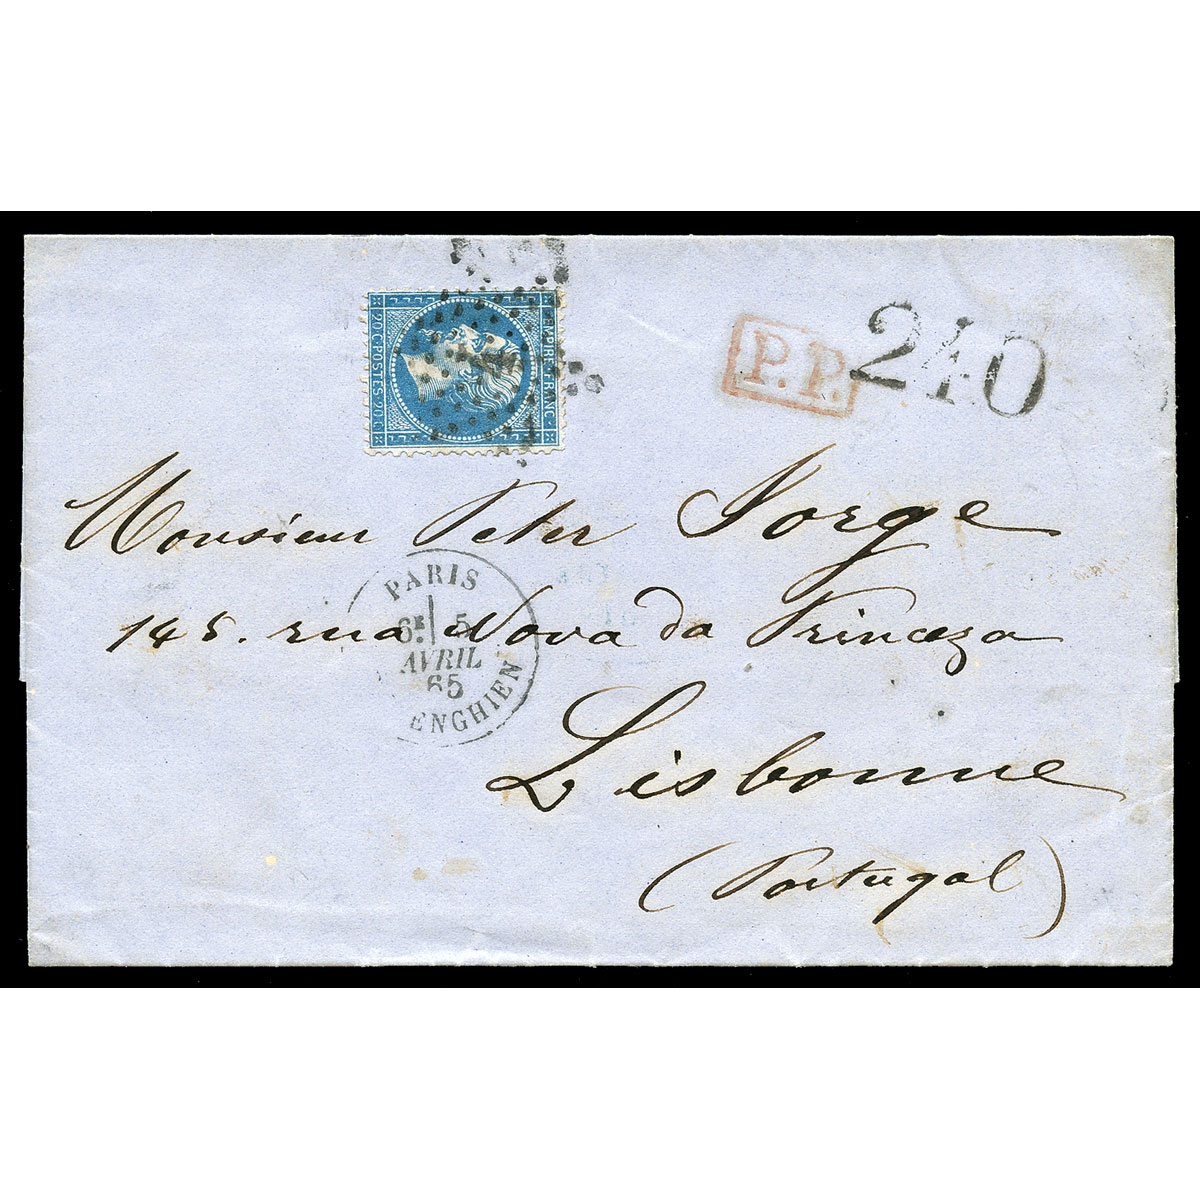 EMPIRE FRANC.
20 C POSTES 20 C
P.P. 240
Monsieur Peter Jorge
PARIS
6E 5
AVRIL
65
ENGHIEN
145. rua Nova da Princeza
Lisbonne
(Portugal)